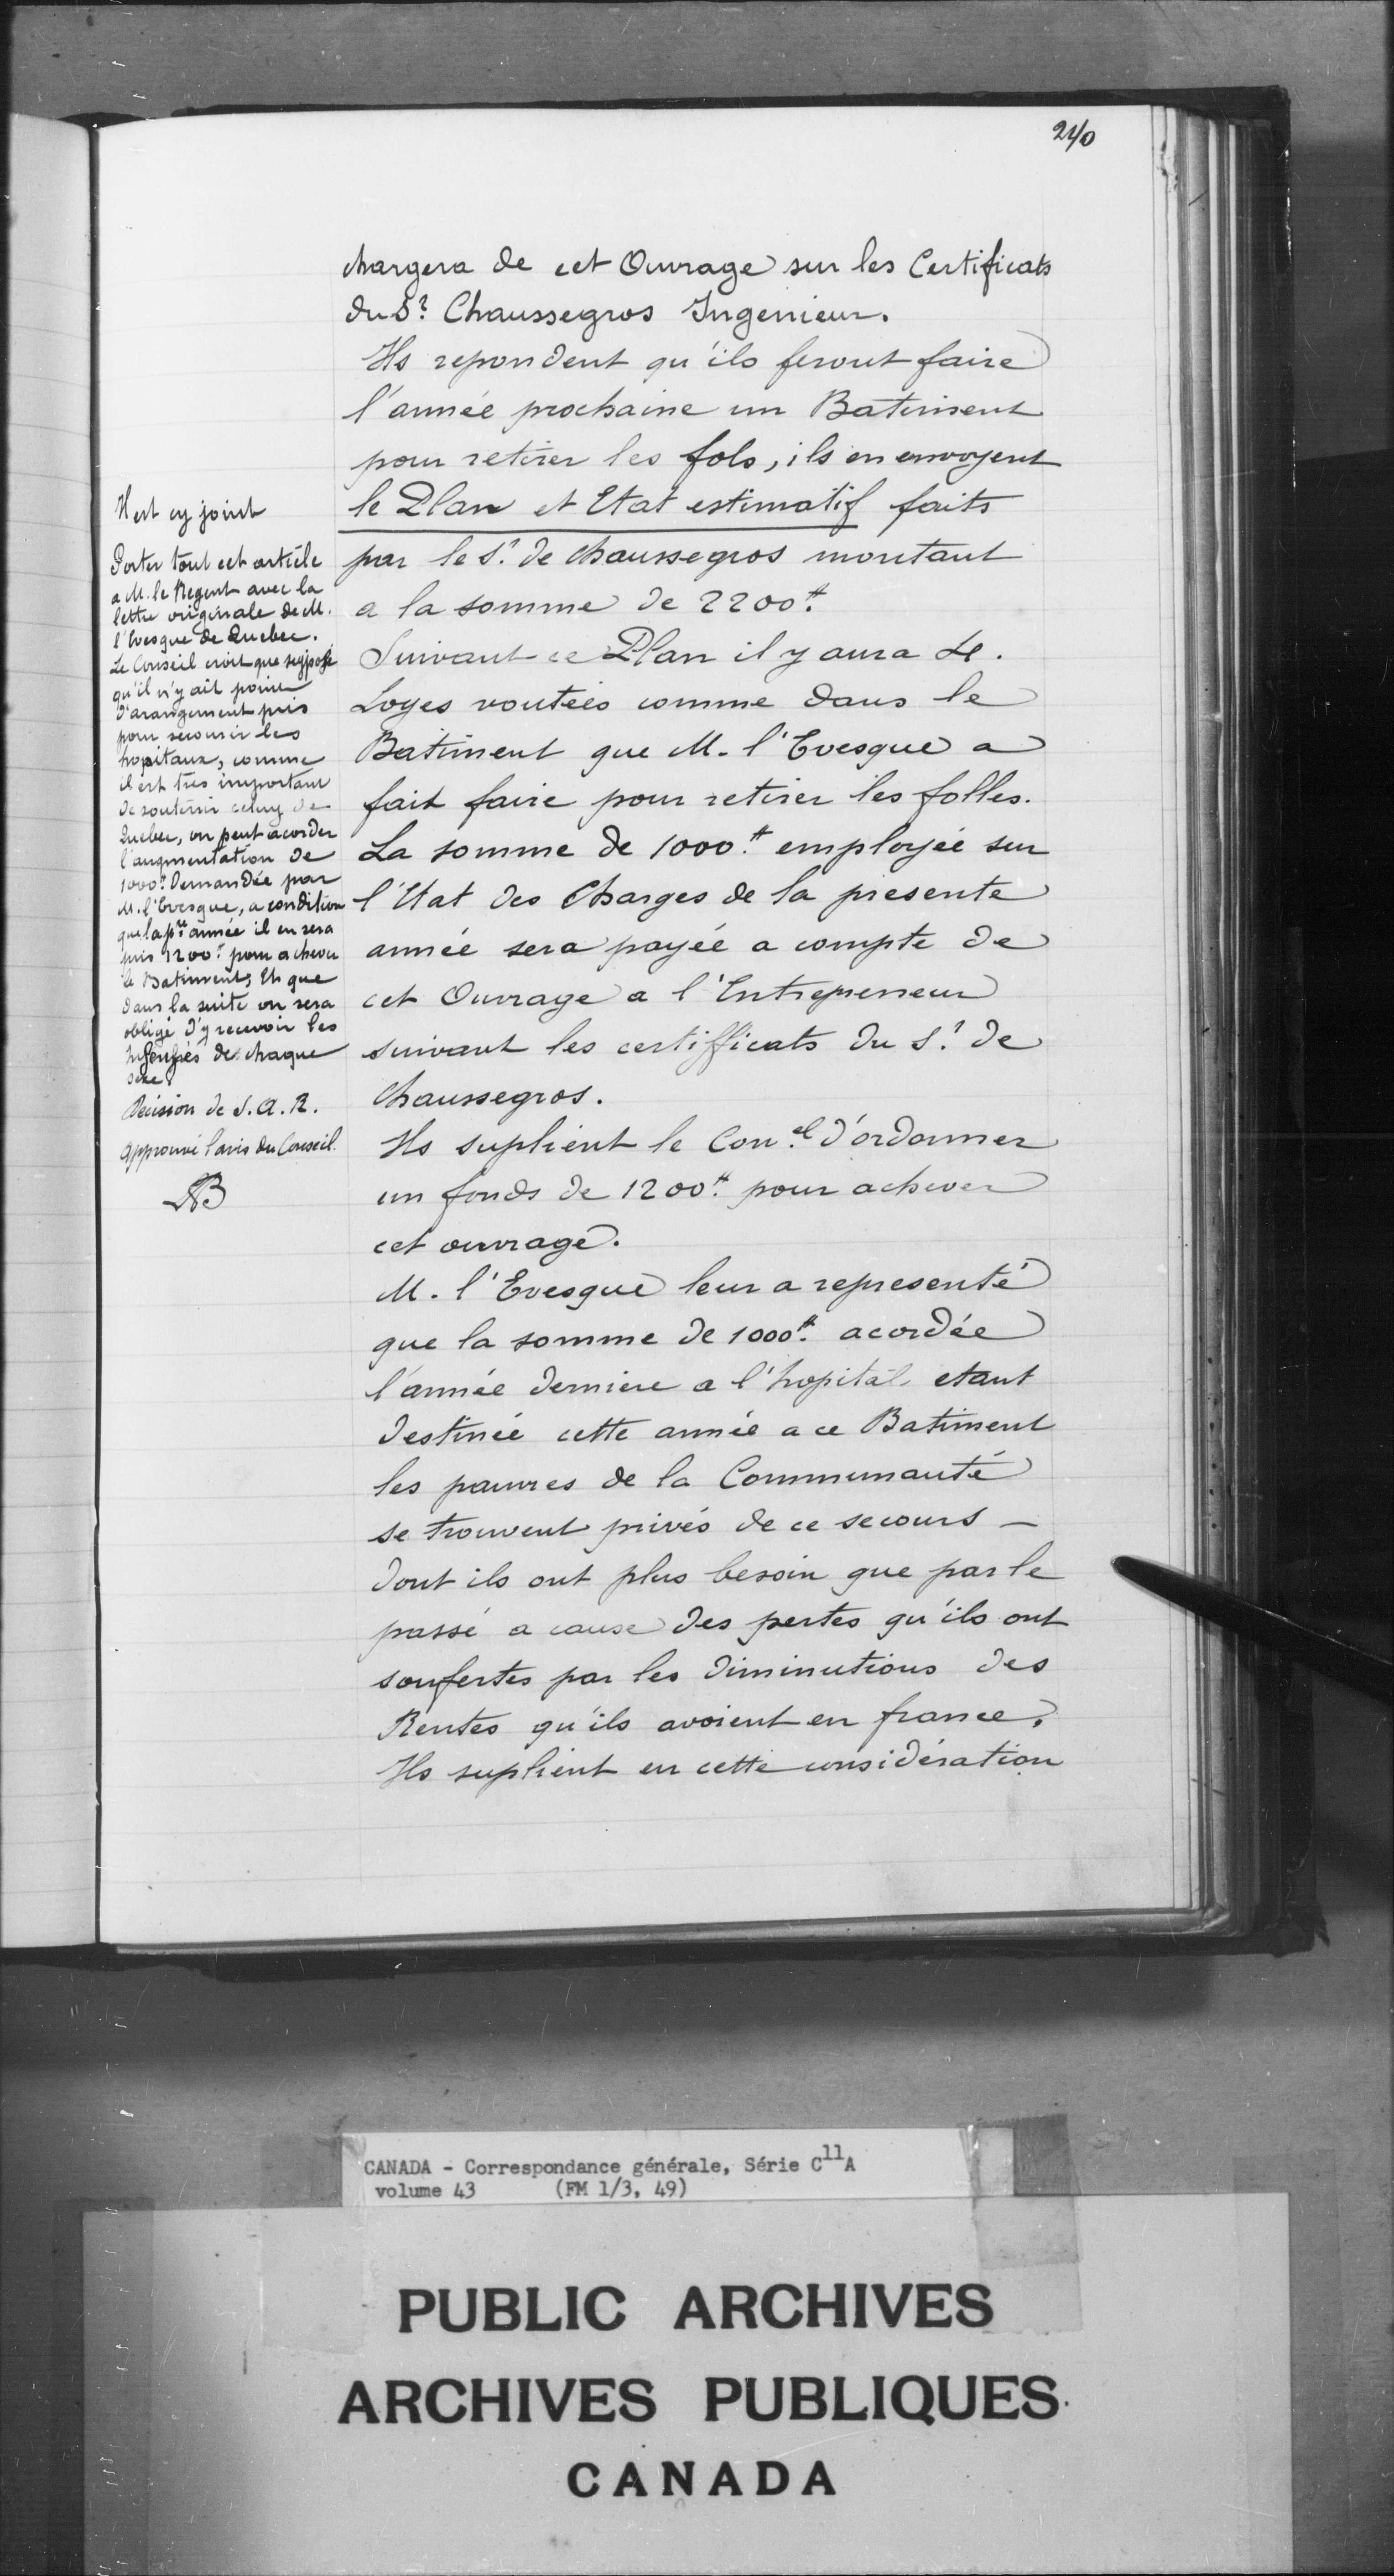 240
chargera de cet Ouvrage sur les Certificats
du Sr. Chaussegros Ingenieur.
Ils repondent qu'ils feront faire
l'année prochaine un Batiment
pour retirer les fols, ils en envoyent
le Plan et Etat estimatif faits
par le Sr. de Chaussegros montant
a la somme de 2200tt.
Suivant ce Plan il y aura
Loges voutées comme dans le
Batiment que M. l'Evesque a
fait faire pour retirer les folles.
La somme de 1000tt. employée sur
l'Etat des Charges de la presente
année sera payée a compte de
cet Ouvrage a l'Entrepreneur
suivant les certifficats du Sr. de
Chaussegros.
Ils suplient le Conel. d'ordonner
un fonds de 1200tt. pour achever
cet ouvrage.
M. l'Evesque leur a representé
que la somme de 1000tt. acordée
l'année derniere a l'hopital etant
destinée cette année a ce Batiment
les pauvres de la Communauté
se trouvent privés de ce secours —
dont ils ont plus besoin que par le
passé a cause des pertes qu'ils ont
soufertes par les diminutions des
Rentes qu'ils avoient en france,
Ils suplient en cette considération
Il est cy joint
Porter tout cet article
a M. le Regent avec la
lettre originale de M.
l'Evesque de Quebec.
Le Conseil croit que
qu'il n'y ait point
d'arangement pris
pour secourir les
hopitaux, comme
il est tres important
de soutenir celuy de
Quebec, on peut acorder
l'augmentation de
1000tt. demandée par
M. l'Evesque, a condition
que la pre. année il en sera
pris 1200tt. pour achever
le Batiment, Et que
dans la suite on sera
obligé d'y recevoir les
de chaque
sexe.
Decision de S. A. R.
Approuvé l'avis du Conseil.
LAB
CANADA - Correspondance générale, Série C11A
volume 43 (FM 1/3, 49)
PUBLIC ARCHIVES
ARCHIVES PUBLIQUES
CANADA